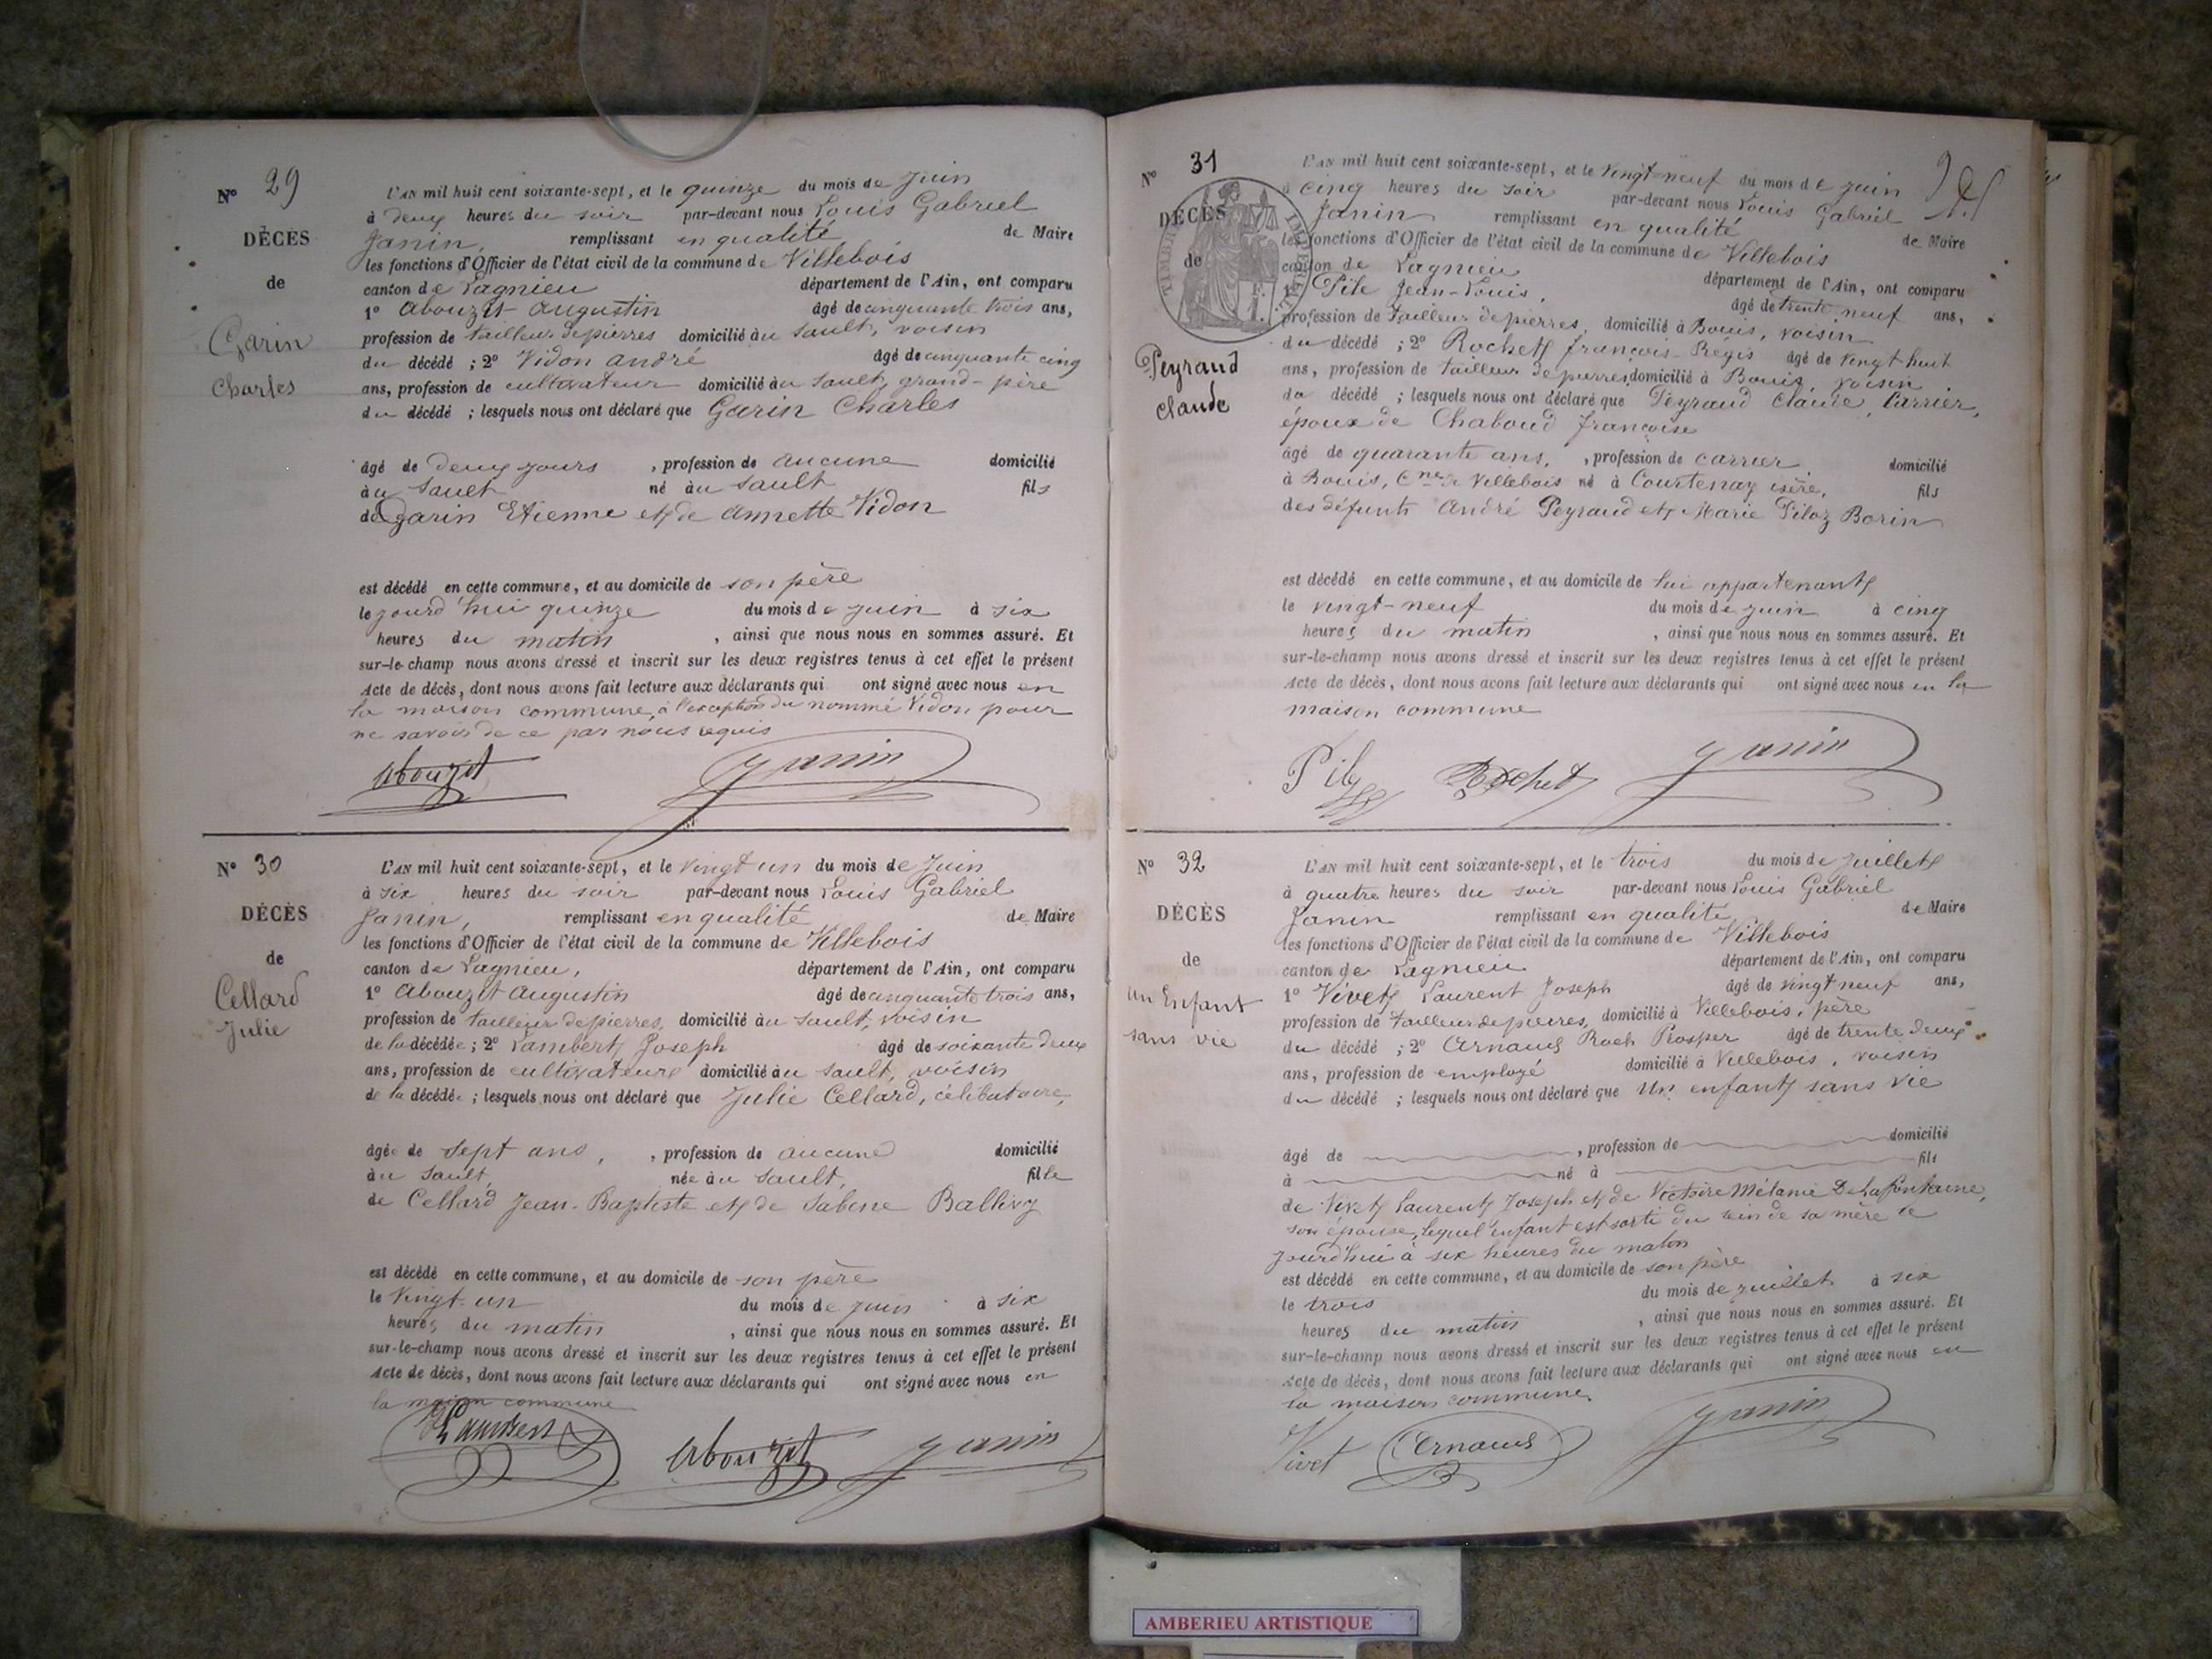 N° 29
DÉCÈS
de
Garin
Charles
L'AN mil huit cent soixante-sept, et le quinze du mois de juin
à deux heures du soir par-devant nous Louis Gabriel
Janin, remplissant en qualité de Maire
les fonctions d'Officier de l'état civil de la commune de Villebois
canton de Lagnieu département de l'Ain, ont comparu
1° Abouzit Augustin âgé de cinquante trois ans,
profession de tailleur de pierres domicilié au Sault, voisin
du décédé ; 2° Vidon André âgé de cinquante cinq
ans, profession de cultivateur domicilié au Sault, grand-père
du décédé ; lesquels nous ont déclaré que Garin Charles
âgé de deux jours , profession de aucune domicilié
au Sault né au Sault fils
de Garin Etienne et de Annette Vidon
est décédé en cette commune, et au domicile de son père
le jourd'hui quinze du mois de juin à six
heures du matin , ainsi que nous nous en sommes assuré. Et
sur-le-champ nous avons dressé et inscrit sur les deux registres tenus à cet effet le présent
Acte de décès, dont nous avons fait lecture aux déclarants qui ont signé avec nous en
la maison commune, à l'exception du nommé Vidon pour
ne savoir de ce par nous requis
Abouzit Janin
N° 30
DÉCÈS
de
Cellard
Julie
L'AN mil huit cent soixante-sept, et le vingt un du mois de juin
à six heures du soir par-devant nous Louis Gabriel
Janin, remplissant en qualité de Maire
les fonctions d'Officier de l'état civil de la commune de Villebois
canton de Lagnieu, département de l'Ain, ont comparu
1° Abouzit Augustin âgé de cinquante trois ans,
profession de tailleur de pierres, domicilié au Sault, voisin
de la décédée ; 2° Lambert Joseph âgé de soixante deux
ans, profession de cultivateur domicilié au Sault, voisin
de la décédée ; lesquels nous ont déclaré que Julie Cellard, célibataire,
âgée de sept ans, , profession de aucune domicilié
au Sault, née au Sault, fille
de Cellard Jean-Baptiste et de Sabine Ballivy
est décédé en cette commune, et au domicile de son père
le vingt-un du mois de juin à six
heures du matin , ainsi que nous nous en sommes assuré. Et
sur-le-champ nous avons dressé et inscrit sur les deux registres tenus à cet effet le présent
Acte de décès, dont nous avons fait lecture aux déclarants qui ont signé avec nous en
la maison commune
Lambert Abouzit Janin
N° 31
DÉCÈS
de
TIMBRE IMPERIAL
Peyraud
Claude
L'AN mil huit cent soixante-sept, et le vingt-neuf du mois de juin
à cinq heures du soir par-devant nous Louis Gabriel
Janin remplissant en qualité de Maire
les fonctions d'Officier de l'état civil de la commune de Villebois
canton de Lagnieu département de l'Ain, ont comparu
1° Pile Jean-Louis, âgé de trente neuf ans,
profession de tailleur de pierres, domicilié à Bouis, voisin
du décédé ; 2° Rochet françois-Régis âgé de vingt huit
ans, profession de tailleur de pierres domicilié à Bouis, voisin
du décédé ; lesquels nous ont déclaré que Peyraud Claude, Carrier,
époux de Chaboud françoise
âgé de quarante ans, , profession de carrier domicilié
à Bouis, Cne de Villebois né à Courtenay isère, fils
des défunts André Peyraud et Marie Piloz Borin
est décédé en cette commune, et au domicile de lui appartenant
le vingt-neuf du mois de juin à cinq
heures du matin , ainsi que nous nous en sommes assuré. Et
sur-le-champ nous avons dressé et inscrit sur les deux registres tenus à cet effet le présent
Acte de décès, dont nous avons fait lecture aux déclarants qui ont signé avec nous en la
maison commune
Rochet Janin
N° 32
DÉCÈS
de
un Enfant
sans vie
L'AN mil huit cent soixante-sept, et le trois du mois de juillet
à quatre heures du soir par-devant nous Louis Gabriel
Janin remplissant en qualité de Maire
les fonctions d'Officier de l'état civil de la commune de Villebois
canton de Lagnieu département de l'Ain, ont comparu
1° Vivet Laurent Joseph âgé de vingt neuf ans,
profession de tailleur de pierres, domicilié à Villebois, père
du décédé ; 2° Arnaud Roch Prosper âgé de trente deux
ans, profession de employé domicilié à Villebois, voisin
du décédé ; lesquels nous ont déclaré que un enfant sans vie
âgé de , profession de domicilié
à né à fils
de Vivet Laurent Joseph et de Victoire Mélanie Delafontaine,
son épouse, lequel enfant est sorti du sein de sa mère le
jourd'hui à six heures du matin
est décédé en cette commune, et au domicile de son père
le trois du mois de juillet à six
heures du matin , ainsi que nous nous en sommes assuré. Et
sur-le-champ nous avons dressé et inscrit sur les deux registres tenus à cet effet le présent
Acte de décès, dont nous avons fait lecture aux déclarants qui ont signé avec nous en
la maison commune
Vivet Arnaud Janin
AMBERIEU ARTISTIQUE